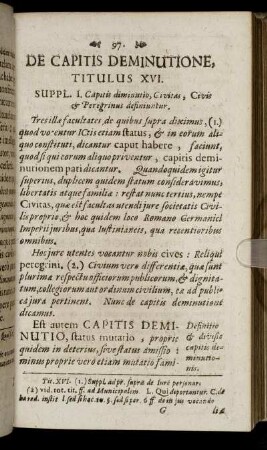 97.
DE CAPITIS DEMINUTIONE,
TITULUS XVI.
SUPPL. I. Capitis diminutio, Civitas, Civis
& Peregrinus definiuntur.
Tres illæ facultates, de quibus supra diximus, (1.)
quod vocentur ICtis etiam status, & in eorum ali-
quo constituti, dicantur caput habere, faciunt,
quod si qui eorum aliquo priventur, capitis demi-
nutionem pati dicantur. Quandoquidem igitur
superius, duplicem quidem statum consideravimus,
libertatis atque familiæ: restat nunc tertius, nempe
Civitas, quæ est facultas utendi jure societatis Civi-
lis proprio, & hoc quidem loco Romano Germanici
Imperii juribus, qua Justinianeis, qua recentioribus
omnibus.
Hoc jure utentes vocantur nobis cives: Reliqui
peregrini, (2.) Civium vero differentia, quæ sunt
plurimæ respectu officiorum publicorum, & dignita-
tum, collegiorum aut ordinum civilium, ex ad publi-
ca jura pertinent. Nunc de capitis deminutione
dicamus.
Est autem CAPITIS DEMI-
NUTIO, status mutatio, proprie
quidem in deterius, sive status amissio:
minus proprie vero etiam mutatio fami-
Definitio
& divisio
capitis de-
minutio-
nis.
Tit. XVI. (1.) Suppl. ad pr. supra de jure personar:
(2) vid. tot. tit. ff. ad Municipalem. L. Qui deportantur. C. de
hæred. instit.
G
liæ